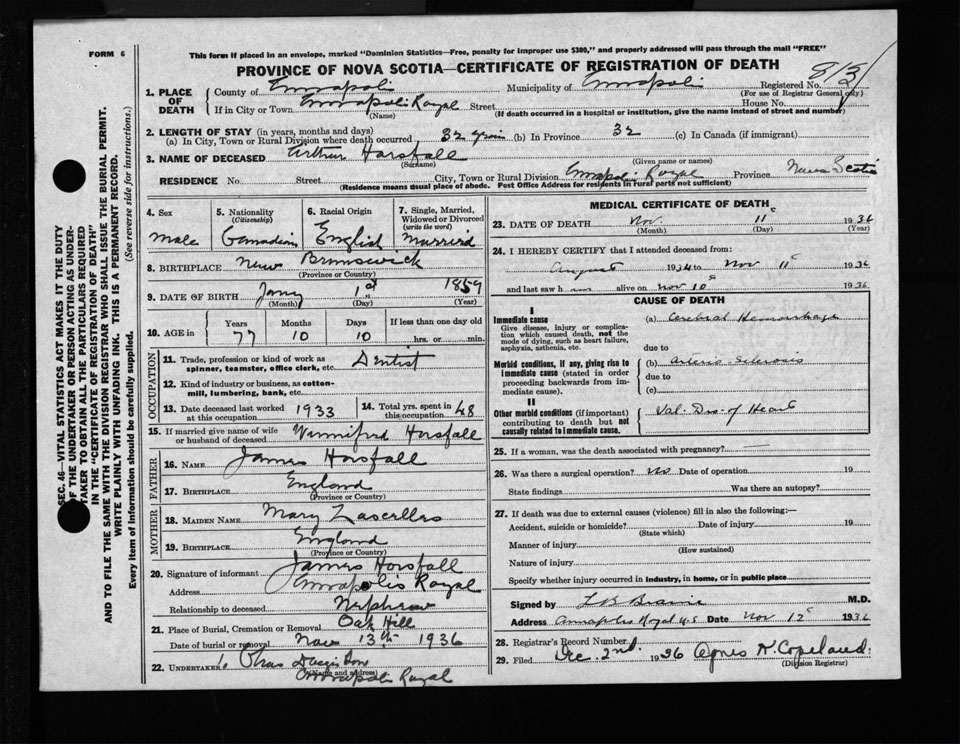 FORM 6
This form if placed in an envelope, marked "Dominion Statistics—Free, penalty for improper use $300," and properly addressed will pass through the mail "FREE"
PROVINCE OF NOVA SCOTIA—CERTIFICATE OF REGISTRATION OF DEATH
1. PLACE OF DEATH
County of Annapolis Municipality of Annapolis Registered No.
(For use of Registrar General only)
If in City or Town Annapolis Royal Street House No.
(Name) (If death occurred in a hospital or institution, give the name instead of street and number)
2. LENGTH OF STAY (in years, months and days)
(a) In City, Town or Rural Division where death occurred 32 years (b) In Province 32 (c) In Canada (if immigrant)
3. NAME OF DECEASED Arthur Horsfall
(Surname) (Given name or names)
RESIDENCE No. Street City, Town or Rural Division Annapolis Royal Province Nova Scotia
(Residence means usual place of abode. Post Office Address for residents in rural parts not sufficient)
4. Sex
Male
5. Nationality
(Citizenship)
Canadian
6. Racial Origin
English
7. Single, Married, Widowed or Divorced
(write the word)
Married
8. BIRTHPLACE New Brunswick
(Province or Country)
9. DATE OF BIRTH Jany 1st 1859
(Month) (Day) (Year)
10. AGE in
Years Months Days If less than one day old
77 10 10 hrs. or min.
OCCUPATION
11. Trade, profession or kind of work as spinner, teamster, office clerk, etc. Dentist
12. Kind of industry or business, as cotton-mill, lumbering, bank, etc.
13. Date deceased last worked at this occupation 1933
14. Total yrs. spent in this occupation 48
15. If married give name of wife or husband of deceased Winnifred Horsfall
FATHER
16. NAME James Horsfall
17. BIRTHPLACE England
(Province or Country)
MOTHER
18. MAIDEN NAME Mary Lascelles
19. BIRTHPLACE England
(Province or Country)
20. Signature of informant James Horsfall
Address Annapolis Royal
Relationship to deceased Nephew
21. Place of Burial, Cremation or Removal Oak Hill
Date of burial or removal Nov 13th 1936
22. UNDERTAKER
(Name and address)
Annapolis Royal
MEDICAL CERTIFICATE OF DEATH
23. DATE OF DEATH Nov 11 1936
(Month) (Day) (Year)
24. I HEREBY CERTIFY that I attended deceased from:
August 1934 to Nov 11 1936
and last saw h alive on Nov 10 1936
CAUSE OF DEATH
I
Immediate cause
Give disease, injury or complication which caused death, not the mode of dying, such as heart failure, asphyxia, asthenia, etc.
(a) Cerebral Hemorrhage
due to
Morbid conditions, if any, giving rise to immediate cause (stated in order proceeding backwards from immediate cause).
(b) Arterio-Sclerosis
due to
(c)
II
Other morbid conditions (if important) contributing to death but not causally related to immediate cause.
Val. Dis. of Heart
25. If a woman, was the death associated with pregnancy?
26. Was there a surgical operation? No Date of operation 19
State findings Was there an autopsy?
27. If death was due to external causes (violence) fill in also the following:—
Accident, suicide or homicide? Date of injury 19
(State which)
Manner of injury
(How sustained)
Nature of injury
Specify whether injury occurred in industry, in home, or in public place
Signed by L B Braine M.D.
Address Annapolis Royal N.S. Date Nov 12 1936
28. Registrar's Record Number 1
29. Filed Dec. 2nd 1936 Agnes K. Copeland
(Division Registrar)
SEC. 46—VITAL STATISTICS ACT MAKES IT THE DUTY
OF THE UNDERTAKER OR PERSON ACTING AS UNDER-
TAKER TO OBTAIN ALL THE PARTICULARS REQUIRED
IN THE "CERTIFICATE OF REGISTRATION OF DEATH"
AND TO FILE THE SAME WITH THE DIVISION REGISTRAR WHO SHALL ISSUE THE BURIAL PERMIT.
WRITE PLAINLY WITH UNFADING INK. THIS IS A PERMANENT RECORD.
Every item of information should be carefully supplied. (See reverse side for instructions.)